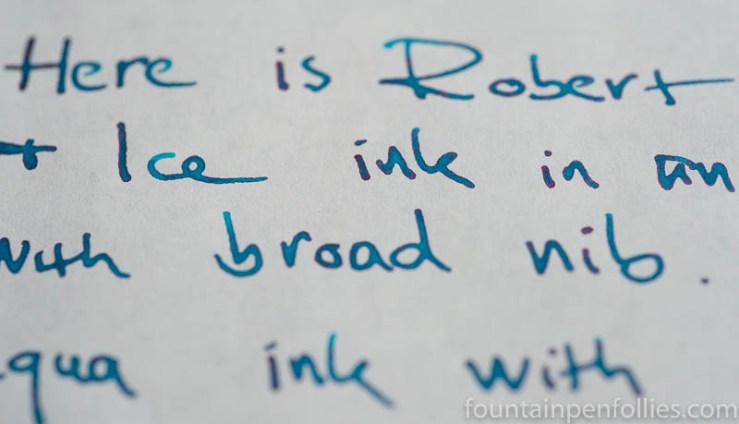 Here is Robert
Ice ink in an
with broad nib.
qua ink with
fountainpenfollies.com